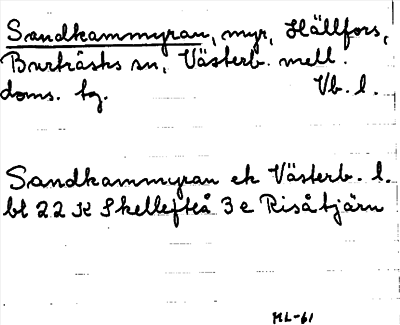 Sandkammyran, myr, Hällfors,
Burträsks sn, Västerb. mell.
doms. tg. Vb. l.
Sandkammyran ek Västerb. l.
bl 22 K Skellefteå 3 e Risåtjärn
HL-61